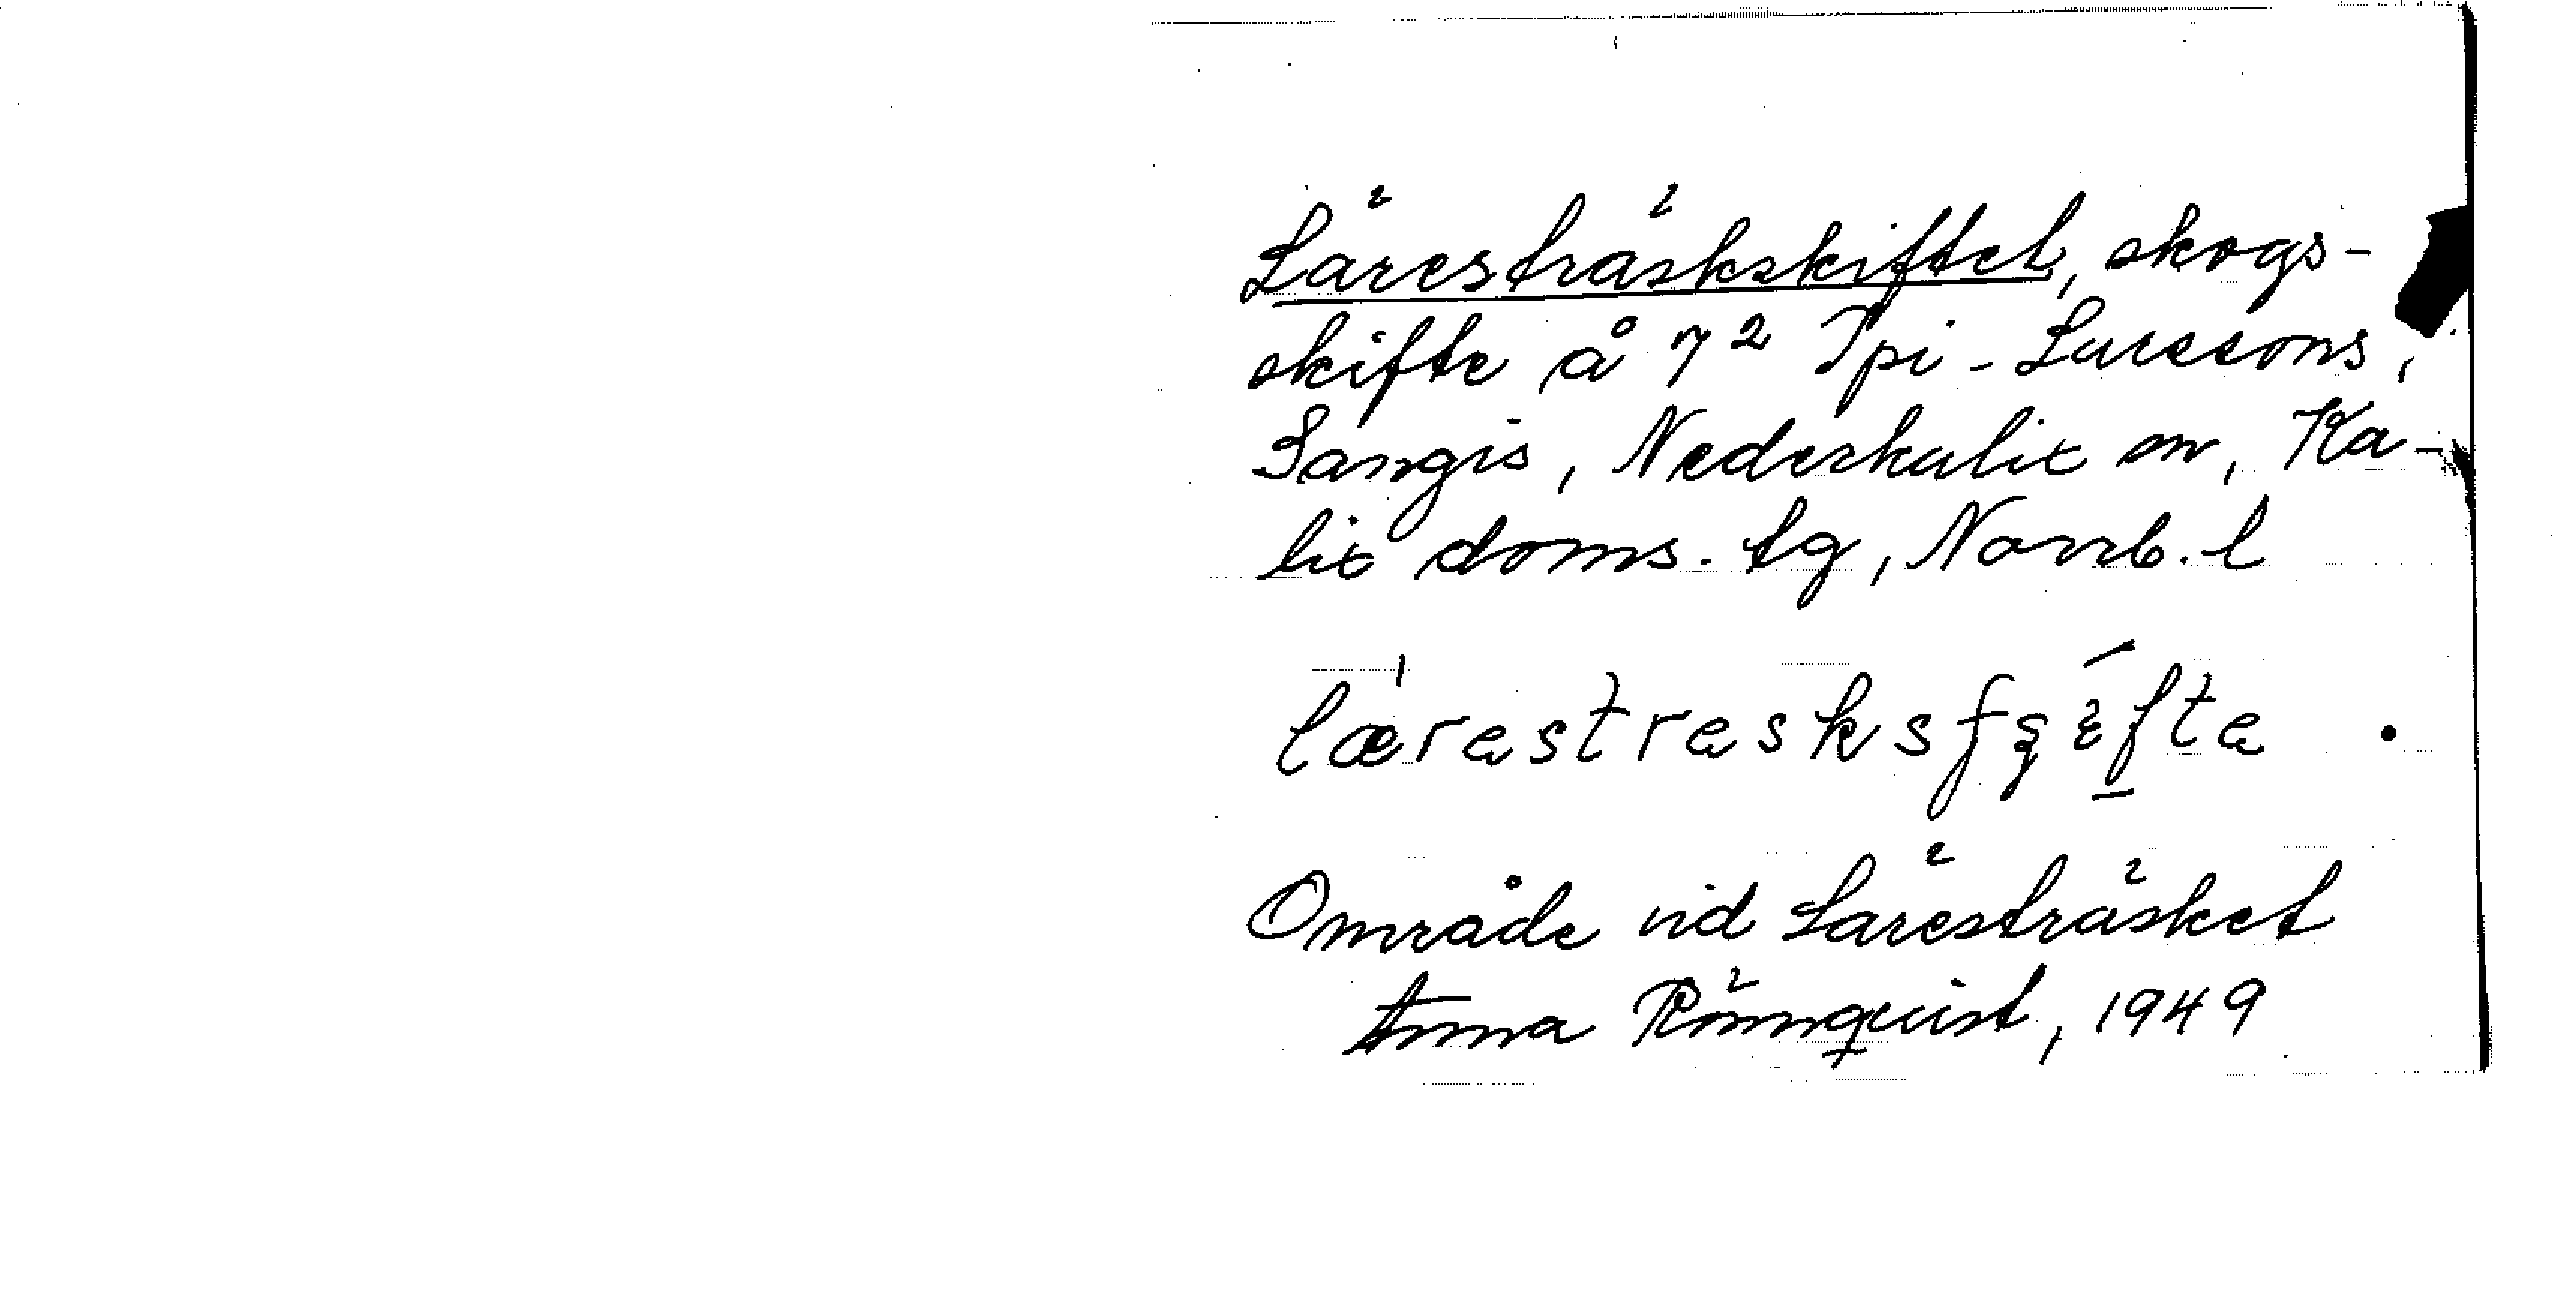 Läresträskskiftet, skogs-
skifte å 7² Ipi-Larssons,
Sangis, Nederkalix sn, Ka-
lix doms.tg, Norrb.l
Område vid Läresträsket
Anna Rönnquist, 1949